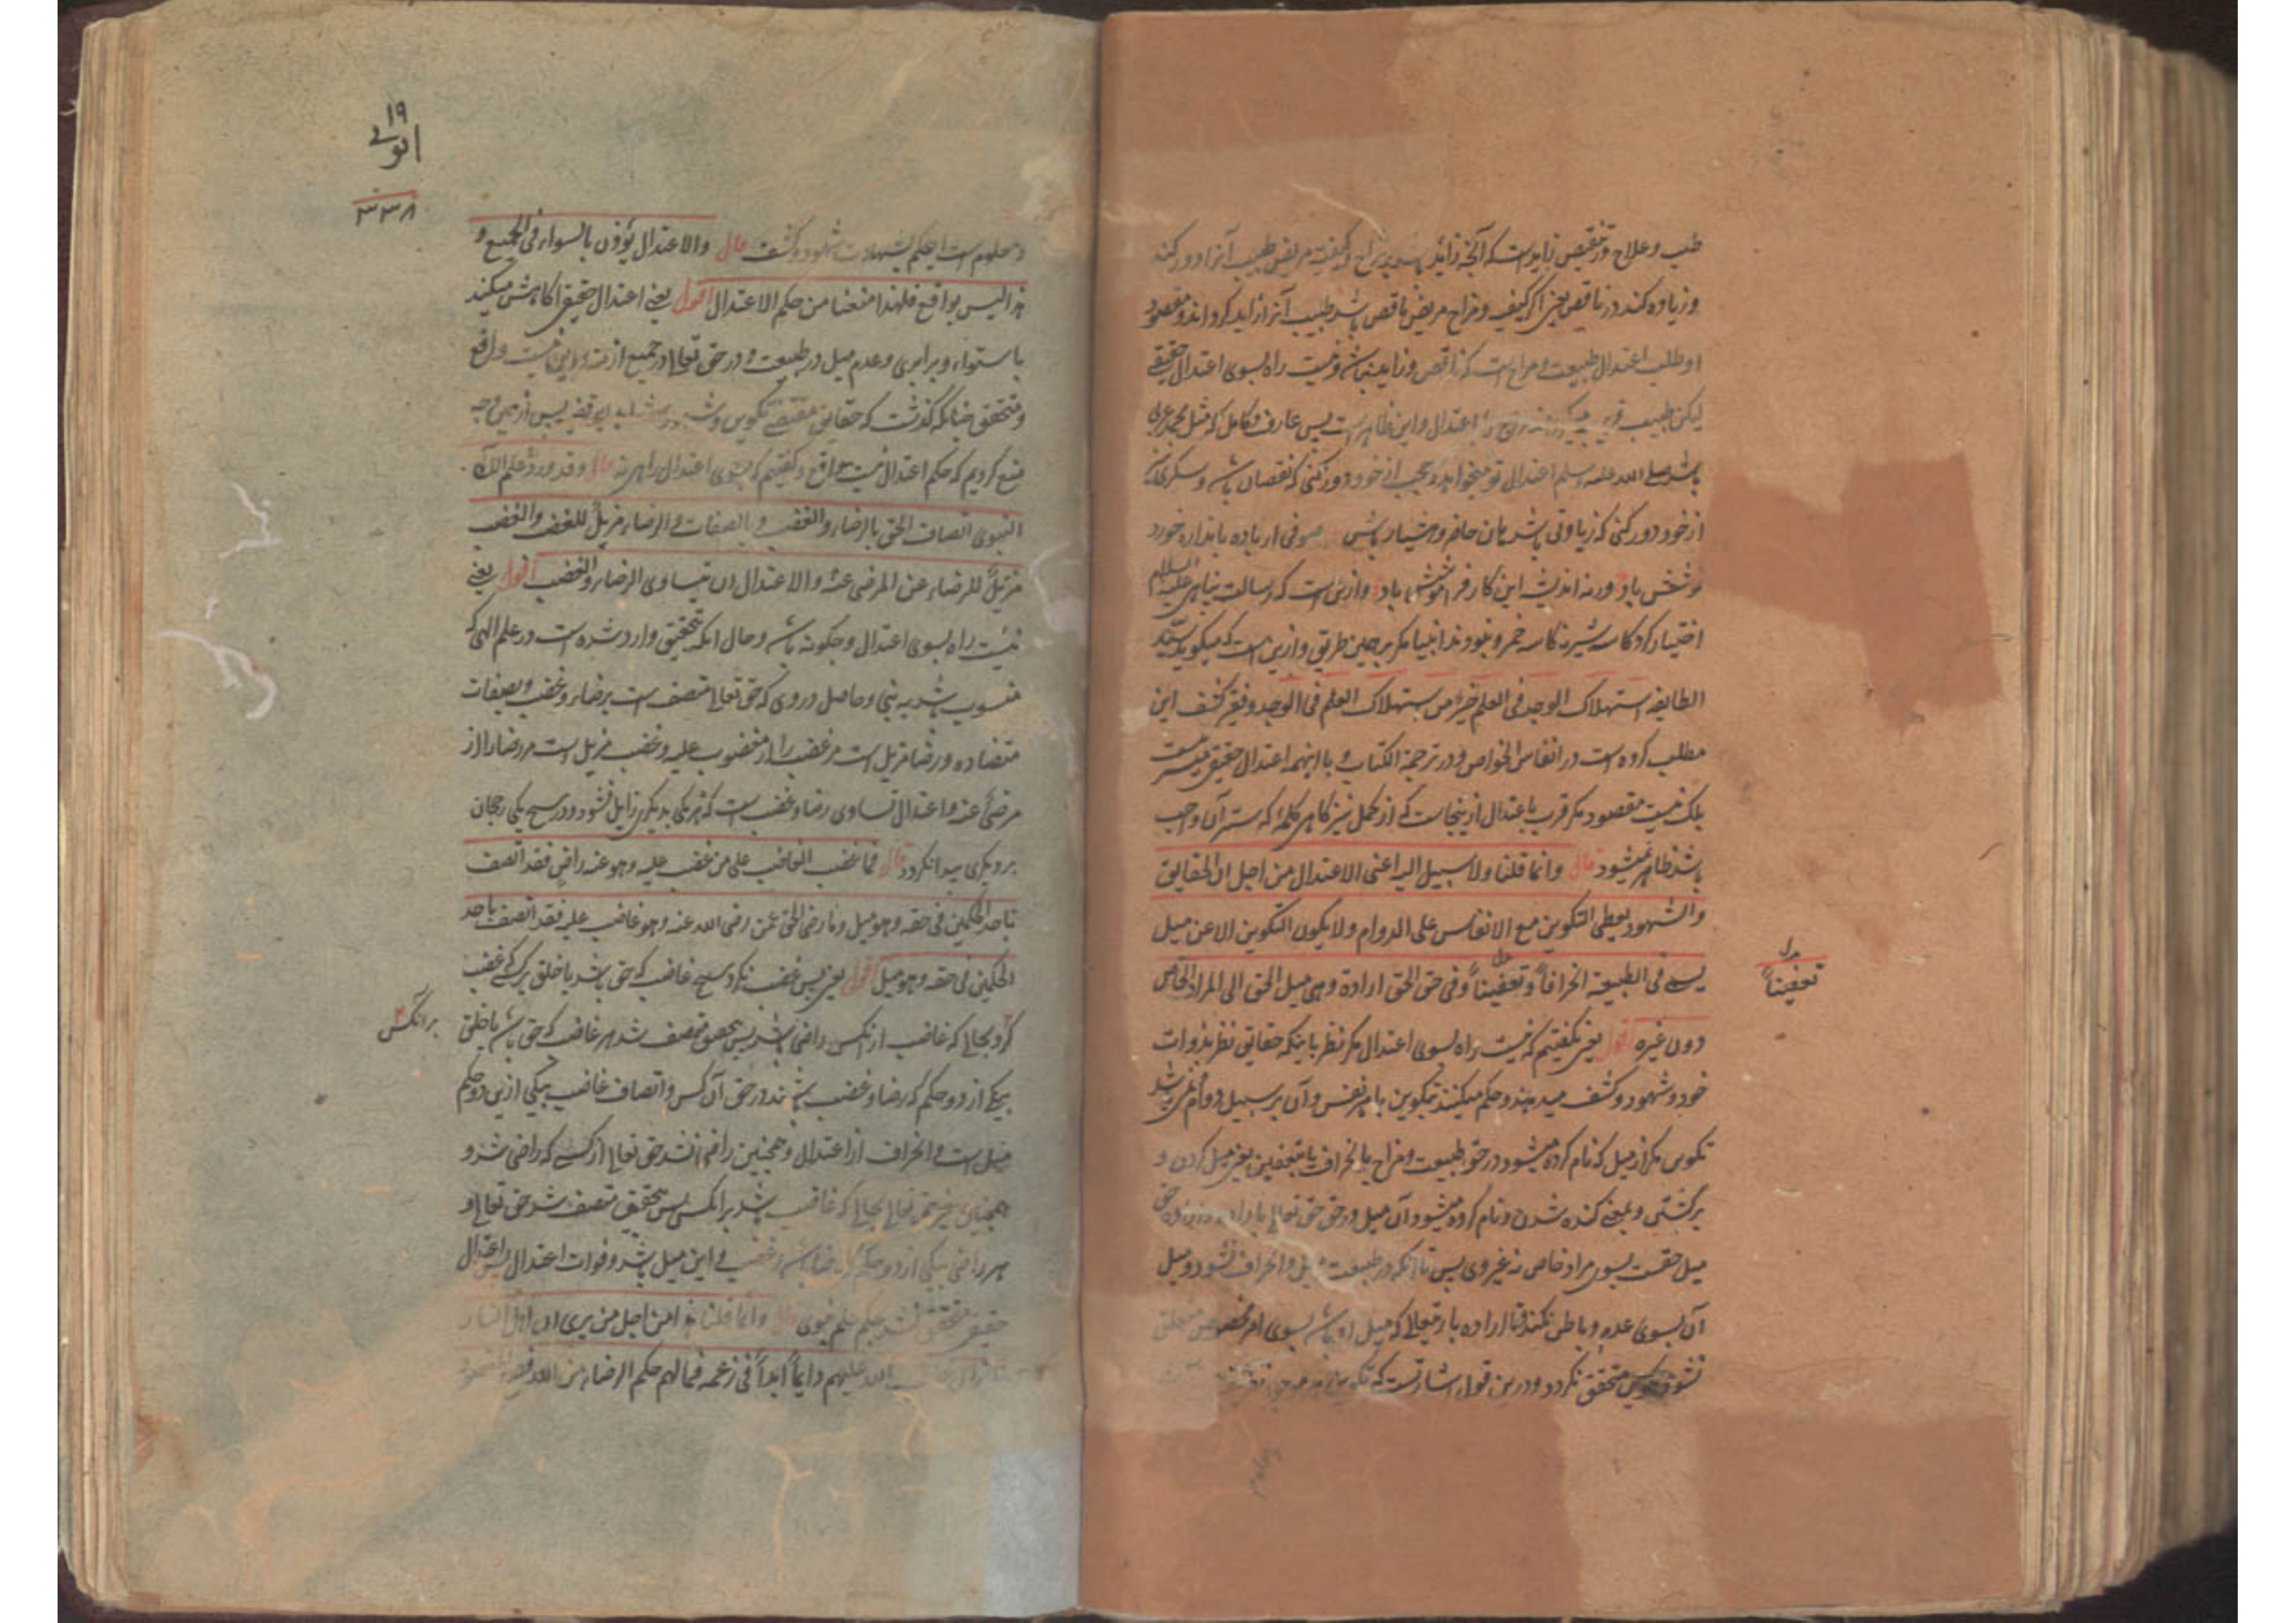 طب و علاج در تنقیص زایدست که آنچه زاید باشد در مزاج و کیفیت مریض طبیب آنرا دور کند
و زیاده کند در ناقص یعنی اگر کیفیت و مزاج مریض ناقص باشد طبیب آنرا زاید کرداند و مقصود
او طلب اعتدال طبیعت و مزاج است که ناقص و زاید نباشد و نیست راه بسوی اعتدال حقیقی
لیکن طبیب اعتدال و این ظاهر است پس عارف و کامل که مثل محمد عربی
باشد صلی الله علیه وسلم اعتدال تو میخواهد و عجب از خود دور کنی که نقصان باشد و سکری
از خود دور کنی که زیادتی باشد هان حاضر و هشیار باش صوفی ار باده باندازه خورد
نوشش باد ورنه اندیشه این کار فراموشش باد و ازین است که رسالت پناهی علیه السلام
اختیار کرد کاسه شیر نه کاسه خمر و نبودند انبیا مکر بر همین طریق و ازین است که میکوید سید
الطایفه استهلاک الوجد فی العلم خیر من استهلاک العلم فی الوجد و فقیر کشف این
مطلب کرده است در انفاس الخواص و در ترجمة الکتاب و با اینهمه اعتدال حقیقی میسر نیست
بلکه نیست مقصود مکر قرب باعتدال ازینجاست که از کمل نیز کاهی کلمهٔ که ستر آن واجب
باشد ظاهر میشود قال وانما قلنا ولا سبیل الیه اعنی الاعتدال من اجل ان الحقایق
والشهود یعطی التکوین مع الانفاس علی الدوام ولا یکون التکوین الا عن میل
یسمی فی الطبیعة انحرافاً و تعفیناً وفی حق الحق ارادة وهی میل الحق الی المراد الخاص
دون غیره اقول یعنی نکفتیم که نیست راه بسوی اعتدال مکر نظر باینکه حقایق نظر بذوات
خود و شهود و کشف میدهند و حکم میکنند تکوین با هر نفس و آن بر سبیل دوام می باشد
تکوین مکر از میل که نام کرده میشود در حق طبیعت و مزاج بانحراف یا بتعفین یعنی میل کردن و
برکشتن و بمعنی کنده شدن و نام کرده میشود آن میل در حق حق تعالی باراده
میل حقست بسوی مراد خاص نه غیر وی پس تا آنکه در طبیعت میل و انحراف نشود و میل
آن بسوی عدم و باطن نکند قبال اراده باریتعالی که میل او باشد بسوی امر مخصوص متعلق
نشود متحقق نکردد و درین قول اشارتست که تکوین
تعفیناً
۱۹
۳۳۸
و معلوم است این حکم بشهادت شهود و کشف قال والاعتدال یؤذن بالسواء فی الجمیع و
هذا لیس بواقع فلهذا منعنا من حکم الاعتدال اقول یعنی اعتدال حقیقی آکاهش میکند
باستواء و برابری و عدم میل در طبیعت و در حق تعالی در جمیع ازمنه و این نیست واقع
و متحقق چنانکه کذشت که حقایق مقتضی تکوین پس ازین وجه
منع کردیم که حکم اعتدال نیست واقع و کفتیم که بسوی اعتدال راهی نه قال وقد ورد فی العلم الالهی
النبوی اتصاف الحق بالرضاء والغضب وبالصفات والرضاء مزیل للغضب والغضب
مزیل للرضاء عن المرضی عنه والاعتدال ان یتساوی الرضاء والغضب اقول یعنی
نیست راه بسوی اعتدال و چکونه باشد و حال آنکه بتحقیق وارد شده است در علم الهی که
منسوب باشد به نبی و حاصل در وی که حق تعالی متصف است برضاء و غضب و بصفات
متضاده و رضا مزیل است مر غضب را از مغضوب علیه و غضب مزیل است مر رضا را از
مرضی عنه و اعتدال تساوی رضا و غضب است که هر یکی بدیکری زایل نشود و در هیچ یکی رجحان
بر دیکری پیدا نکردد قال فما غضب الغاضب علی من غضب علیه وهو عنه راض فقد اتصف
باحد الحکمین فی حقه وهو میل وما رضی الحق عمن رضی الله عنه وهو غاضب علیه فقد اتصف باحد
الحکمین فی حقه وهو میل اقول یعنی پس غضب نکرد هیچ غاضب که حق باشد یا خلق بر کسی که غضب
کرد بحالی که غاضب از آنکس راضی باشد پس بتحقیق متصف شد هر غاضب که حق باشد یا خلق
برآنکس
بیکی از دو حکم که رضا و غضب باشند در حق آن کس و اتصاف غاضب بیکی ازین دو حکم
میل است و انحراف از اعتدال و همچنین راضی نشد حق تعالی از کسی که راضی شد و
همچنین غیر حق تعالی بحالی که غاضب باشد بر آنکس پس بتحقیق متصف شد حق تعالی و
هر راضی بیکی از دو حکم که رضا باشد و غضب و این میل باشد و فوات اعتدال
حقیقی متحقق نشد بحکم علم نبوی قال وانما قلنا هذا من اجل من یری ان اهل النار
الله علیهم دایماً ابداً فی زعمه فما لهم حکم الرضاء من الله فصح المقصود